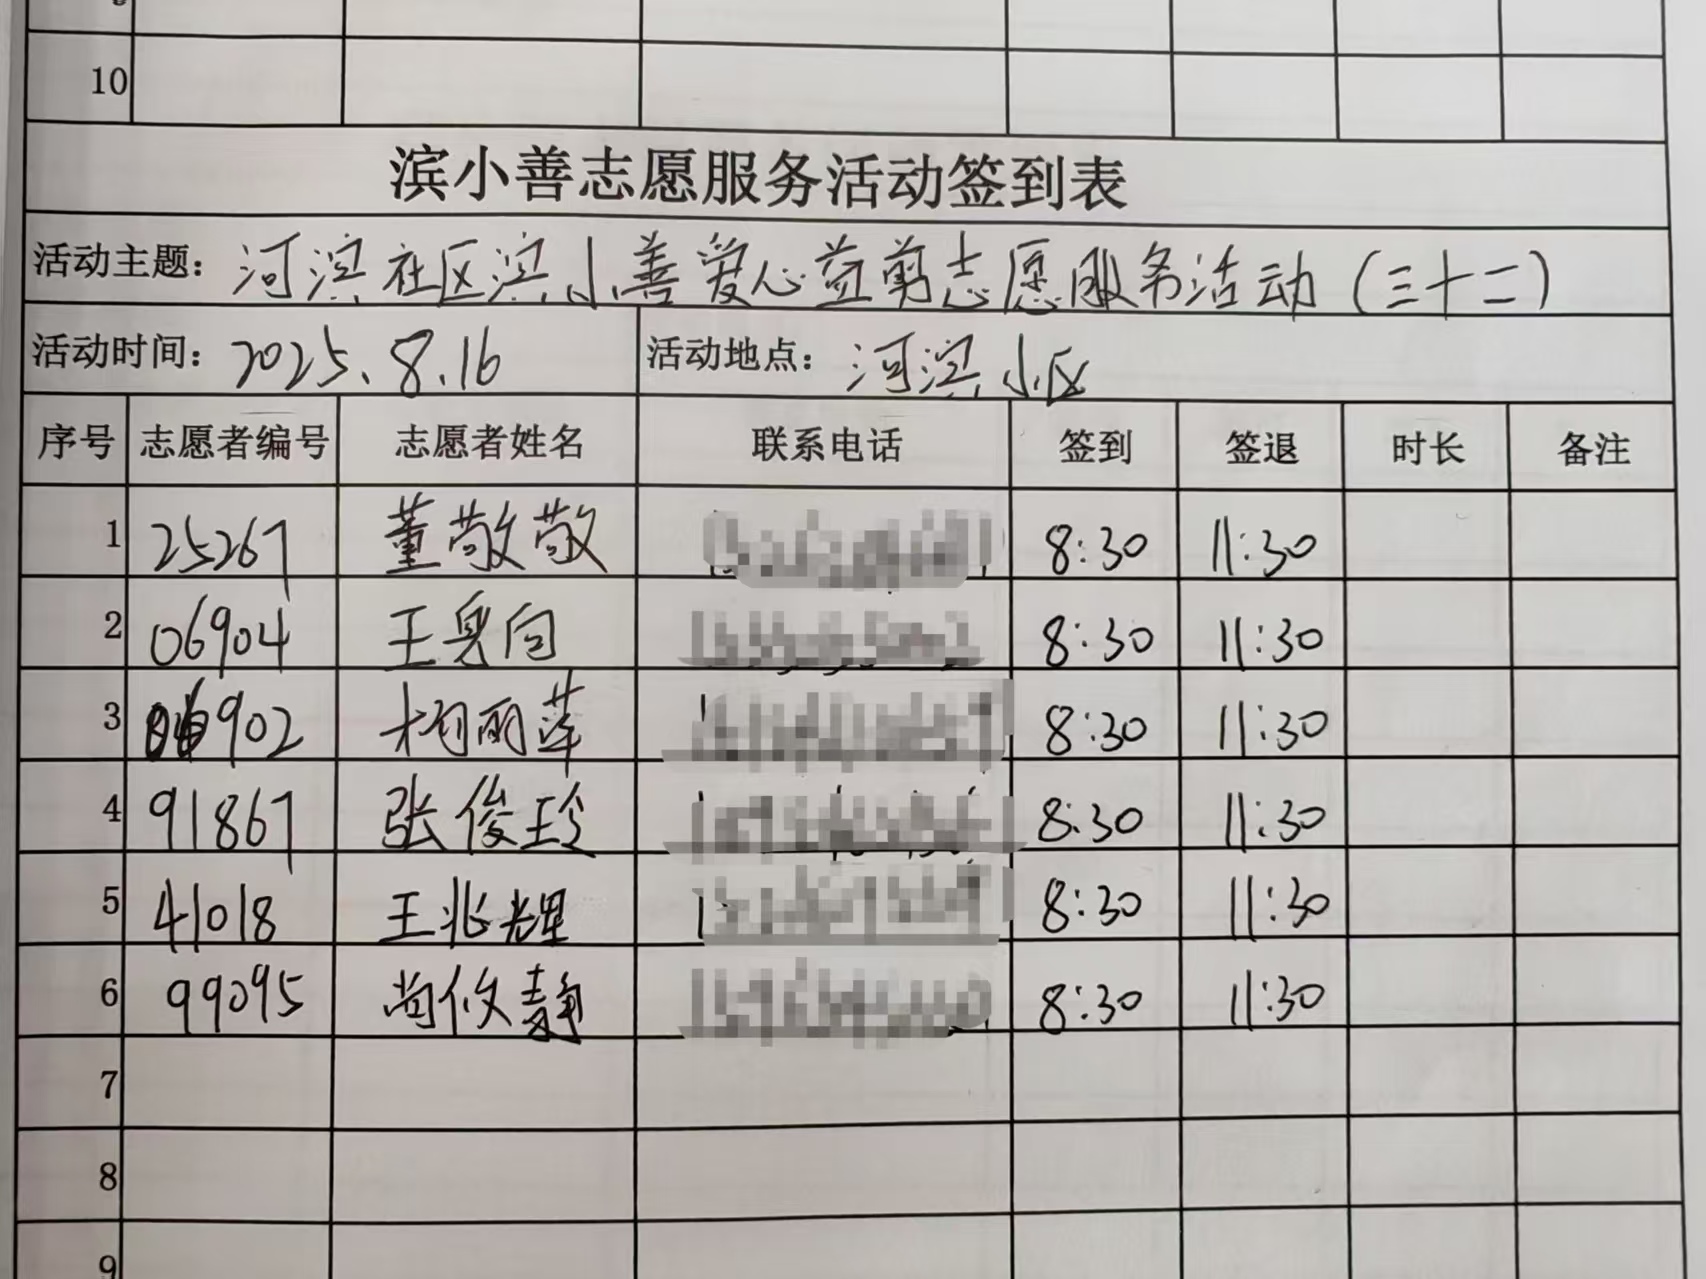 10
滨小善志愿服务活动签到表
活动主题：河滨社区滨小善爱心益剪志愿服务活动（三十二）
活动时间：2025.8.16 活动地点：河滨小区
序号 志愿者编号 志愿者姓名 联系电话 签到 签退 时长 备注
1 25267 董敬敬 8:30 11:30
2 06904 王 向 8:30 11:30
3 06902 杨丽莲 8:30 11:30
4 91867 张俊玲 8:30 11:30
5 41018 王兆辉 8:30 11:30
6 99095 尚攸静 8:30 11:30
7
8
9